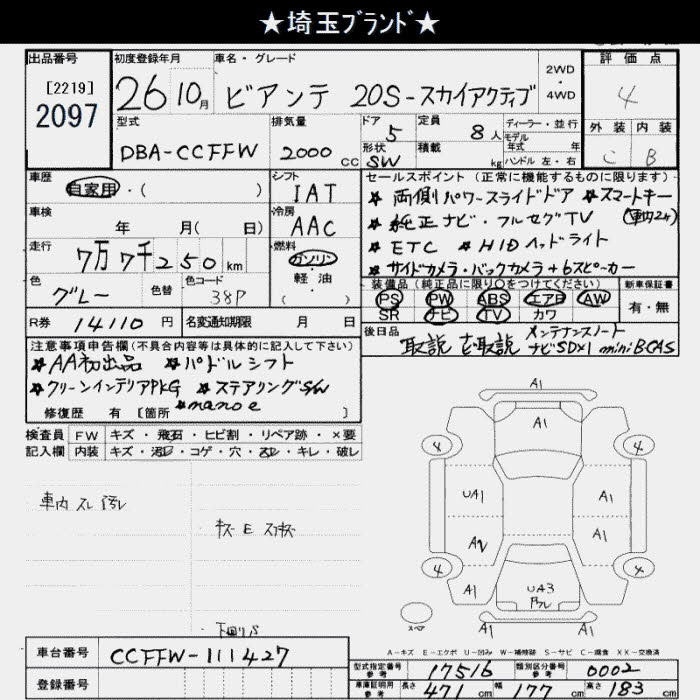 ★埼玉ブランド★
出品番号
[2219]
2097
初度登録年月
26 10月
車名・グレード
ビアンテ 20S-スカイアクティブ
2WD
・
4WD
評価点
4
外装 内装
C B
型式
DBA-CCFFW
排気量
2000 cc
ドア
5
形状
SW
定員
8人
積載
kg
ディーラー・並行
モデル
年式 年
ハンドル 左・右
車歴
自家用・( )
シフト
IAT
車検
年 月( 日)
冷房
AAC
走行
7万7千250 km
燃料
ガソリン
軽油
( )
色
グレー
色替
色コード
38P
R券 14110 円
名変通知期限 月 日
セールスポイント (正常に機能するものに限ります)
★両側パワースライドドア ★スマートキー
★純正ナビ・フルセグTV (車内2ヶ)
★ETC ★HIDヘッドライト
★サイドカメラ・バックカメラ+6スピーカー
装備品 (純正品に限り○をつけてください)
PS PW ABS エアB AW
SR ナビ TV カワ
新車保証書
有・無
後日品
取説 ナビ取説 メンテナンスノート
ナビSD×1 miniBCAS
注意事項申告欄(不具合内容等は具体的に記入して下さい)
★AA初出品 ★パドルシフト
★クリーンインテリアPKG ★ステアリングSW
★nanoe
修復歴 有 [箇所 ]
検査員 FW キズ・飛石・ヒビ割・リペア跡・×要
記入欄 内装 キズ・汚れ・コゲ・穴・凹・キレ・破レ
車内 スレ 汚レ
キズ E スリキズ
下回りS
A1
A1
4 4
UA1 A1
A2 A1
4 4
A1 UA3 A1
スペア
A1
A-キズ E-エクボ U-凹み W-補修跡 S-サビ C-腐食 XX-交換済
車台番号 CCFFW-111427
登録番号
型式指定番号
参考
17516
類別区分番号
参考
0002
車庫証明用
参考
長さ 471 cm 幅 177 cm 高さ 183 cm